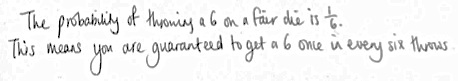 The probability of throwing a 6 on a fair die is 1/6.
This means you are guaranteed to get a 6 once in every six throws